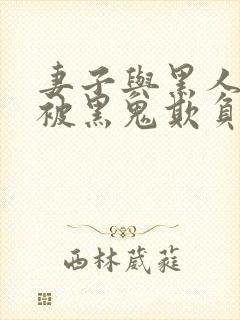 妻子與黑人
被黑鬼欺負
西林葳蕤